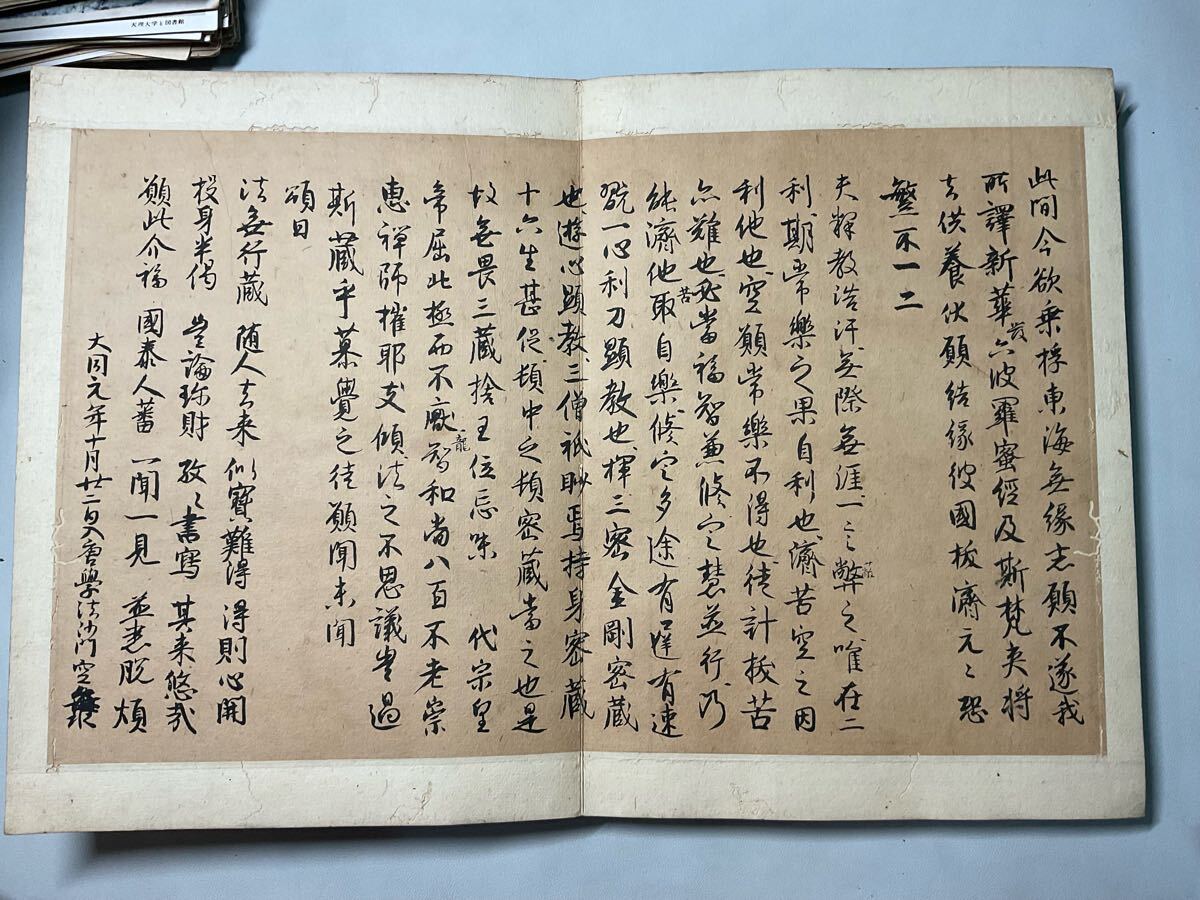 天理大学と図書館
此間今欲乗桴東海無縁志願不遂我
所譯新華嚴六波羅蜜經及斯梵夾将
去供養伏願結縁彼國抜濟元々恐
繁不一二
夫釋教浩汗無際無涯一言弊之唯在二
利期常樂之果自利也濟苦空之因
利他也空願常樂不得也徒計抜苦
亦難也必當福智兼修定慧並行乃
能濟他苦取自樂修定多途有遲有速
翫一心利刀顯教也揮三密金剛密蔵
也遊心顯教三僧祇眇焉持身密蔵
十六生甚促頓中之頓密蔵當之也是
故無畏三蔵捨王位忘味 代宗皇
帝屈此極而不厭龍智和尚八百不老崇
惠禅師摧耶支傾法之不思議豈過
斯蔵乎慕覺之徒願聞未聞
頌曰
法無行蔵 随人去来 似寶難得 得則心開
投身半偈 豈論珎財 孜々書寫 其来悠哉
願此介福 國泰人蕃 一聞一見 並悉脱煩
大同元年十月廿二日入唐學法沙門空